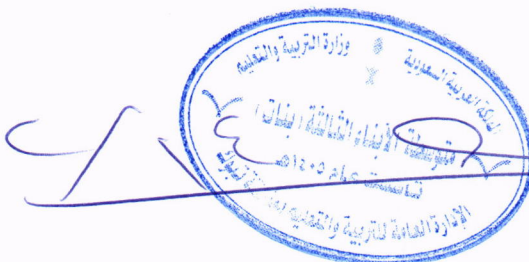 المملكة العربية السعودية
وزارة التربية والتعليم
متوسطة الأبناء الثالثة (بنات)
تأسست عام ١٤٠٥هـ
الإدارة العامة للتربية والتعليم تبوك